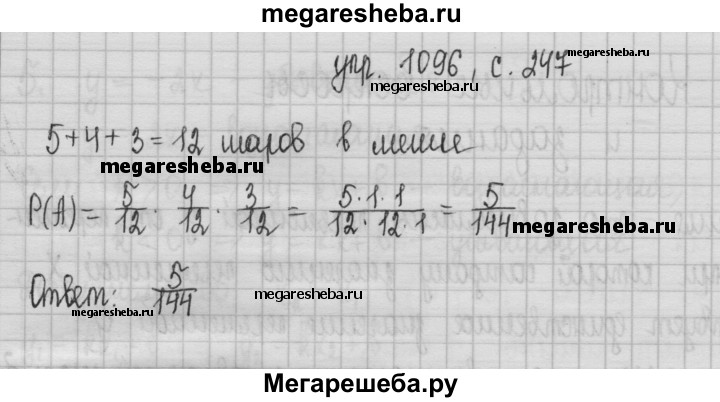 megaresheba.ru
упр. 1096, с. 247
megaresheba.ru
megaresheba.ru
5+4+3=12 шаров в мешке
megaresheba.ru
P(A) = 5/12 · 4/12 · 3/12 = 5·1·1/12·12·1 = 5/144
megaresheba.ru
Ответ: 5/144
megaresheba.ru
megaresheba.ru
Мегарешеба.ру